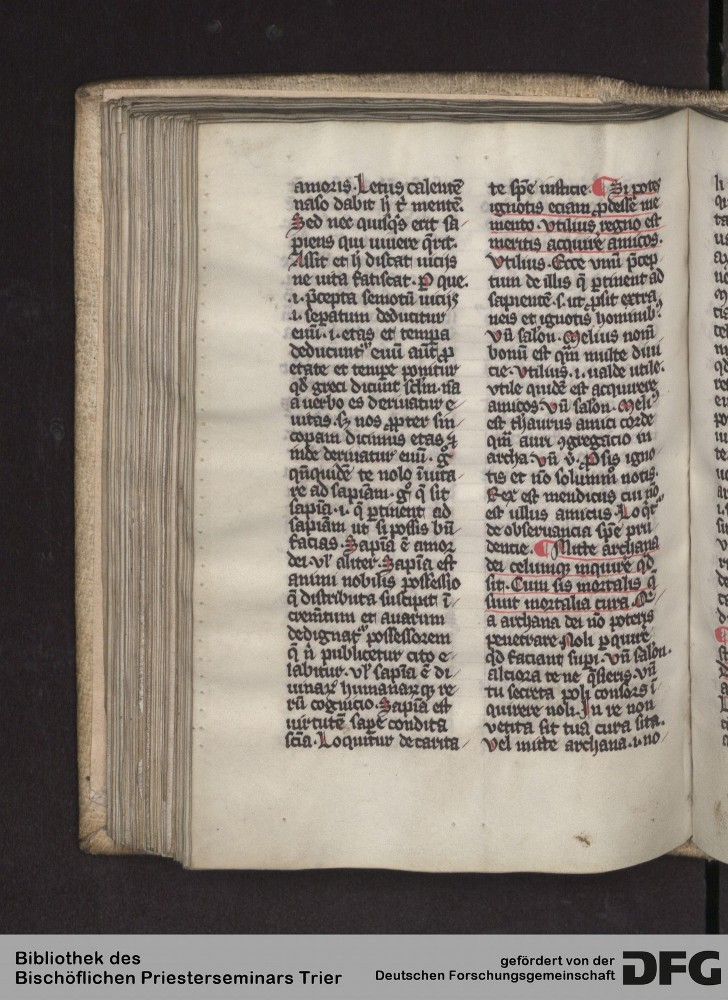 amoris. Letus calentē
naso dabit h̄ t̄ mentē.
Sed nec quisq̄s erit sa
piens qui uiuere q̄rit.
Assit et h̄ distat uicijs
ne uita fatiscat. que.
.i. p̄cepta semotū uicijs
.i. sepatum deducitur
euū. i. etas et tempa
deducunt᷑ euū aūt
etate et tempe ponitur
qd̄ greci dicunt
a uerbo es deriuatur e
uitas. sꝫ nos ꝓpter sin
copam dicimus etas ⁊
inde deriuatur euū. gͦ
qn̄quidē te nolo īuita
re ad sapiam. gͦ q̄ sit
sapia. i. q̄ ptinent ad
sapiam ut si possis bn̄
facias. Sapīa ē amor
dei. vl̄ aliter. Sapīa est
animi nobilis possessio
q̄ distributa suscipit ī
cremtum et auarum
dedignat᷑ possessorem
q̄ n̄ publicetur cito e
labitur. vl̄ sapīa ē di
uinaꝝ humanaꝝqꝫ re
rū cognicio. Sapīa est
uirtutē sape condita
scīa. Loquitur de carita
te spe iusticie. Si potes
ignotis eciam ꝓdesse me
mento. Vtilius regno est
meritis acquire amicos.
Vtilius. Ecce vnū pcep
tum de illis q̄ ptinent ad
sapientē. s. ut ꝓsit extra
neis et ignotis hominibꝫ
vn̄ salon. Melius nom̄
bonū est qm̄ multe diui
cie. Vtilius. i. ualde utile.
vtile quidē est acquirere
amicos. vn̄ salon. Meliꝰ
est thaurus amici corde
qm̄ auri ꝯgregacio in
archa. vn̄ v̄. Prosis igno
tis et nō solummō notis.
Rex est mendicus cui nō
est ullus amicus. Loq̄t᷑
de obseruancia spe pru
dencie. Mitte archana
dei celumqꝫ inquire qd̄
sit. Cum sis mortalis q̄
sunt mortalia cura.
a archana dei nō poteris
penetrare. Noli pquire
qd̄ faciant supi. vn̄ salon.
alciora te ne q̄sieris. vn̄
tu secreta poli consors ī
quirere noli. In re non
vetita sit tua cura sita.
Vel mitte archana. i. no
Bibliothek des
Bischöflichen Priesterseminars Trier
gefördert von der
Deutschen Forschungsgemeinschaft
DFG